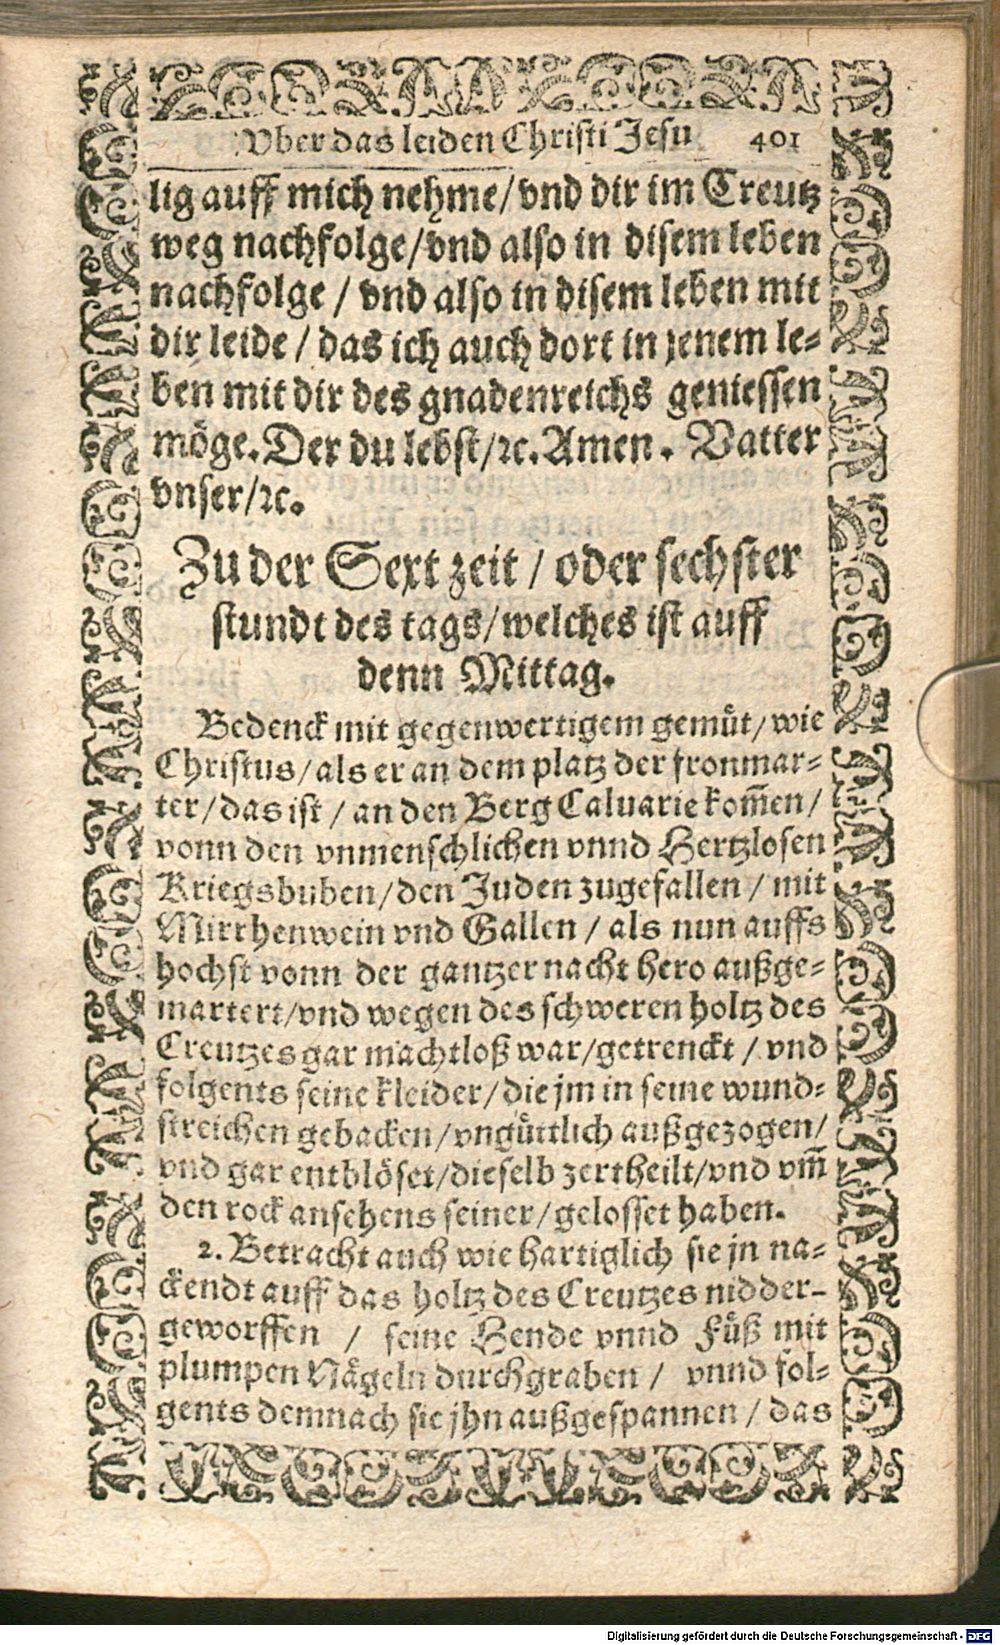 Vber das leiden Christi Jesu 401
lig auff mich nehme/vnd dir im Creutz
weg nachfolge/vnd also in disem leben
nachfolge / vnd also in disem leben mit
dir leide / das ich auch dort in jenem le-
ben mit dir des gnadenreichs geniessen
möge. Der du lebst/ꝛc. Amen. Vatter
vnser/ꝛc.
Zu der Sext zeit / oder sechster
stundt des tags/welches ist auff
denn Mittag.
Bedenck mit gegenwertigem gemüt/wie
Christus/als er an dem platz der fronmar-
ter/das ist / an den Berg Caluarie kom̃en/
vonn den vnmenschlichen vnnd Hertzlosen
Kriegsbuben/den Juden zugefallen / mit
Mirrhenwein vnd Gallen / als nun auffs
hochst vonn der gantzer nacht hero außge-
martert/vnd wegen des schweren holtz des
Creutzes gar machtloß war/getrenckt / vnd
folgents seine kleider/die jm in seine wund-
streichen gebacken/vngüttlich außgezogen/
vnd gar entblöset/dieselb zertheilt/vnd vm̃
den rock ansehens seiner/gelosset haben.
2. Betracht auch wie hartiglich sie jn na-
ckendt auff das holtz des Creutzes nidder-
geworffen / seine Hende vnnd Füß mit
plumpen Nägeln durchgraben / vnnd fol-
gents demnach sie jhn außgespannen / das
Digitalisierung gefördert durch die Deutsche Forschungsgemeinschaft - DFG